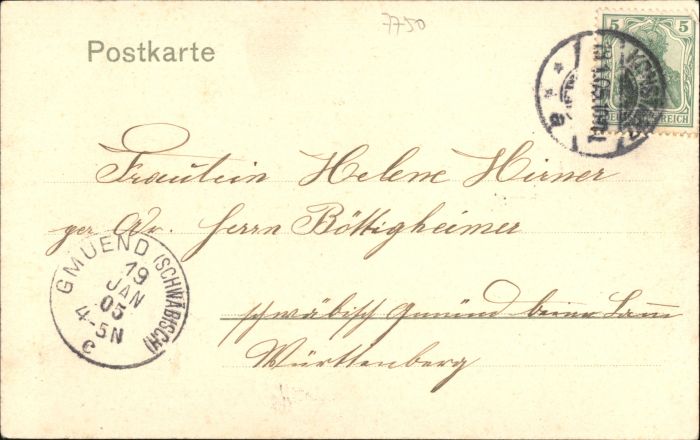 7750
Postkarte
5 5
Fräulein Helene Hirner
per Adr. Herrn Böttigheimer
GMUEND (SCHWÄBISCH)
19
JAN
05
4-5N
c
schwäbisch Gmünd
Württemberg
a